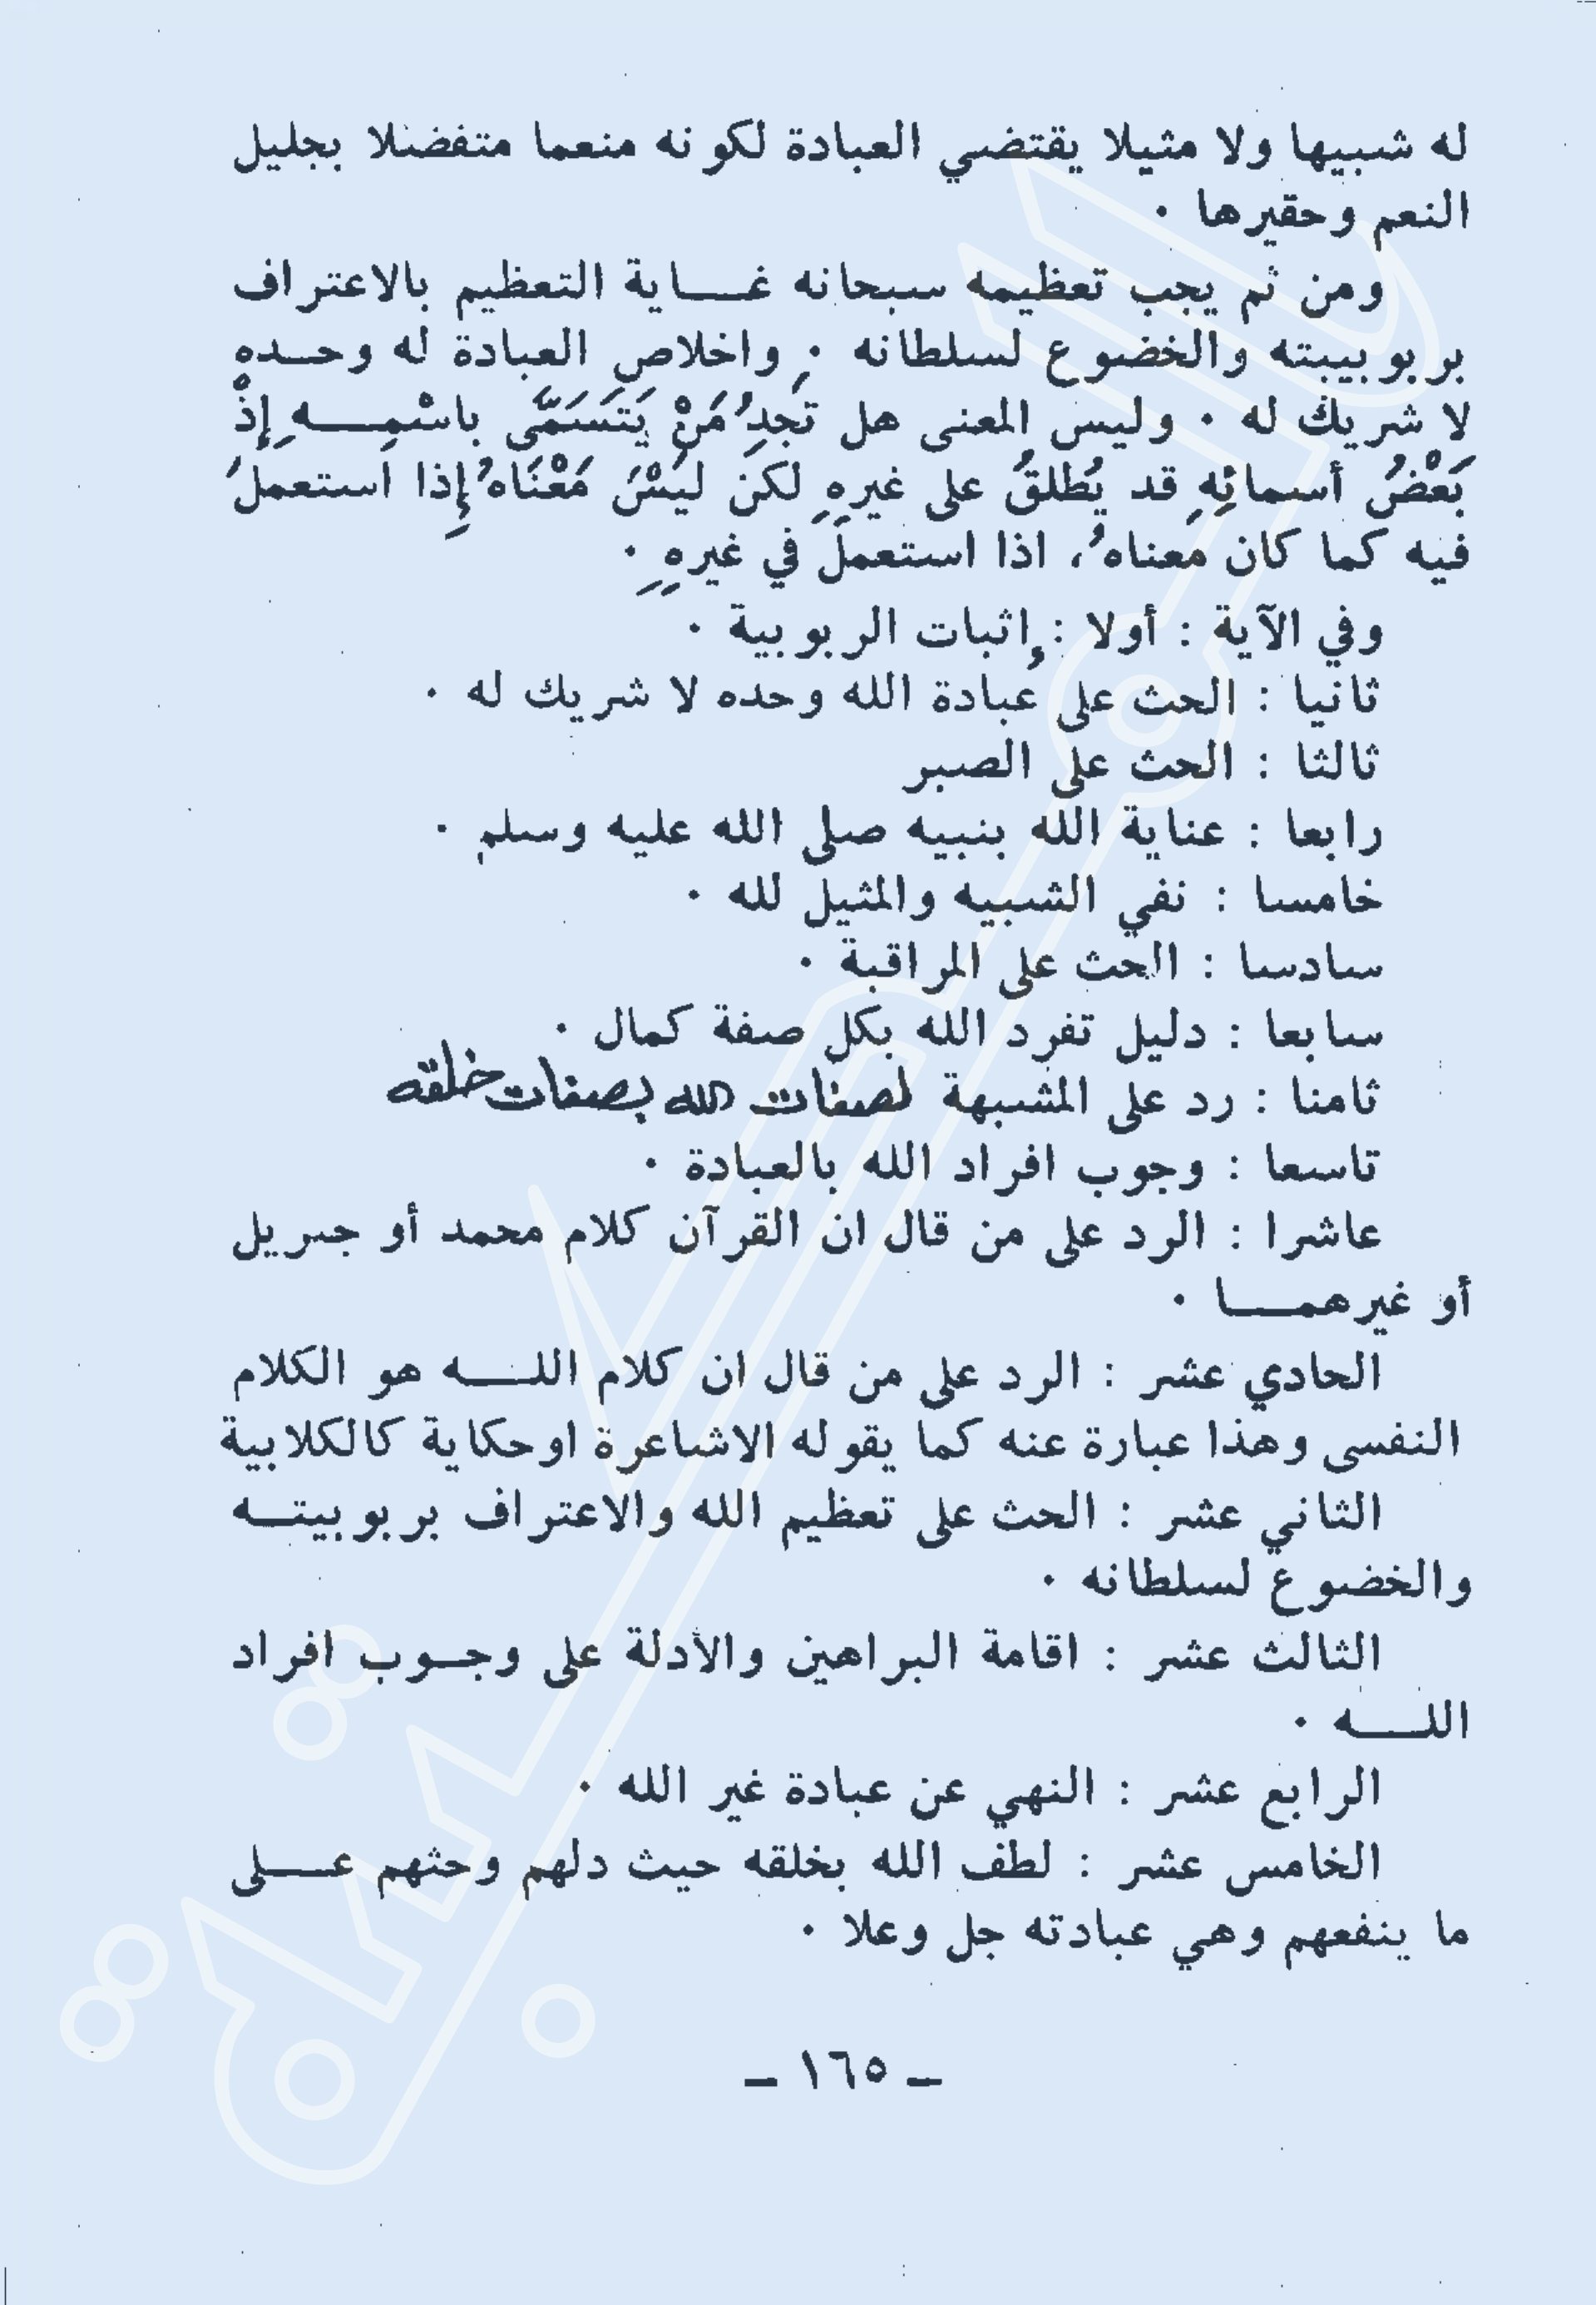 له شبيها ولا مثيلا يقتضي العبادة لكونه منعما متفضلا بجليل
النعم وحقيرها ٠
ومن ثم يجب تعظيمه سبحانه غـــاية التعظيم بالاعتراف
بربوبيبته والخضوع لسلطانه ٠ واخلاص العبادة له وحـده
لا شريك له ٠ وليس المعنى هل تَجِدُ مَنْ يَتَسَمَّى باسْمِـــهِ إِذْ
بَعْضُ أسمائِهِ قد يُطلقُ على غيرِهِ لكن ليْسَ مَعْنَاهُ إِذا استعملَ
فيه كما كان معناهُ، اذا استعملَ في غيرِهِ ٠
وفي الآية : أولا : إثبات الربوبية ٠
ثانيا : الحث على عبادة الله وحده لا شريك له ٠
ثالثا : الحث على الصبر
رابعا : عناية الله بنبيه صلى الله عليه وسلم ٠
خامسا : نفي الشبيه والمثيل لله ٠
سادسا : الحث على المراقبة ٠
سابعا : دليل تفرد الله بكل صفة كمال ٠
ثامنا : رد على المشبهة لصفات الله بصفات خلقه
تاسعا : وجوب افراد الله بالعبادة ٠
عاشرا : الرد على من قال ان القرآن كلام محمد أو جبريل
أو غيرهمـــا ٠
الحادي عشر : الرد على من قال ان كلام اللـــه هو الكلام
النفسى وهذا عبارة عنه كما يقوله الاشاعرة اوحكاية كالكلابية
الثاني عشر : الحث على تعظيم الله والاعتراف بربوبيتـه
والخضوع لسلطانه ٠
الثالث عشر : اقامة البراهين والأدلة على وجـوب افراد
اللـــه ٠
الرابع عشر : النهي عن عبادة غير الله ٠
الخامس عشر : لطف الله بخلقه حيث دلهم وحثهم عـــلى
ما ينفعهم وهي عبادته جل وعلا ٠
ـ ١٦٥ ـ